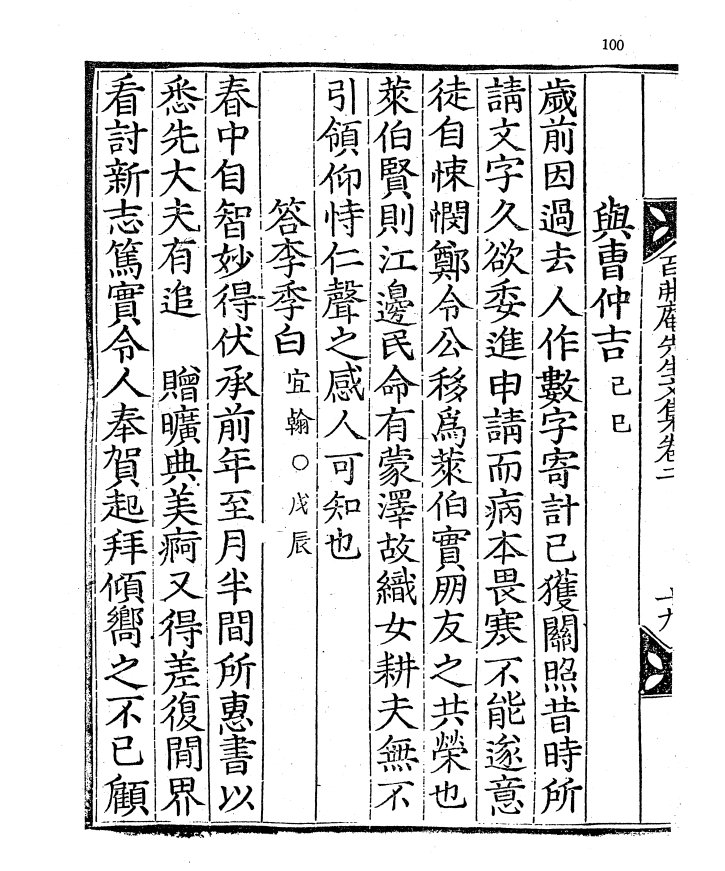 100
與曺仲吉 己巳
歲前因過去人作數字寄計已獲關照昔時所
請文字久欲委進申請而病本畏寒不能遂意
徒自悚憫鄭令公移爲萊伯實朋友之共榮也
萊伯賢則江邊民命有蒙澤故織女耕夫無不
引領仰恃仁聲之感人可知也
答李季白 宜翰○戊辰
春中自智妙得伏承前年至月半間所惠書以
悉先大夫有追 贈曠典美痾又得差復閒界
看討新志篤實令人奉賀起拜傾嚮之不已顧
先生文集卷二
十九